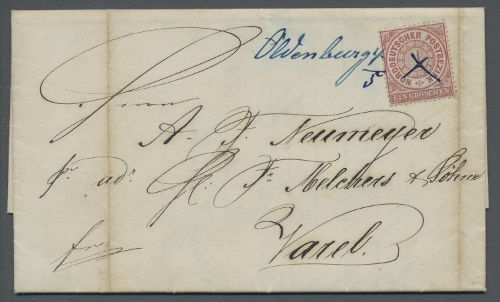 Oldenburg 4/5
NORDDEUTSCHER POSTBEZIRK
EIN GROSCHEN
Herrn
A. F. Neumeyer
pr. adr. H. Fr. Melchers & Söhne
Varel.
fr.